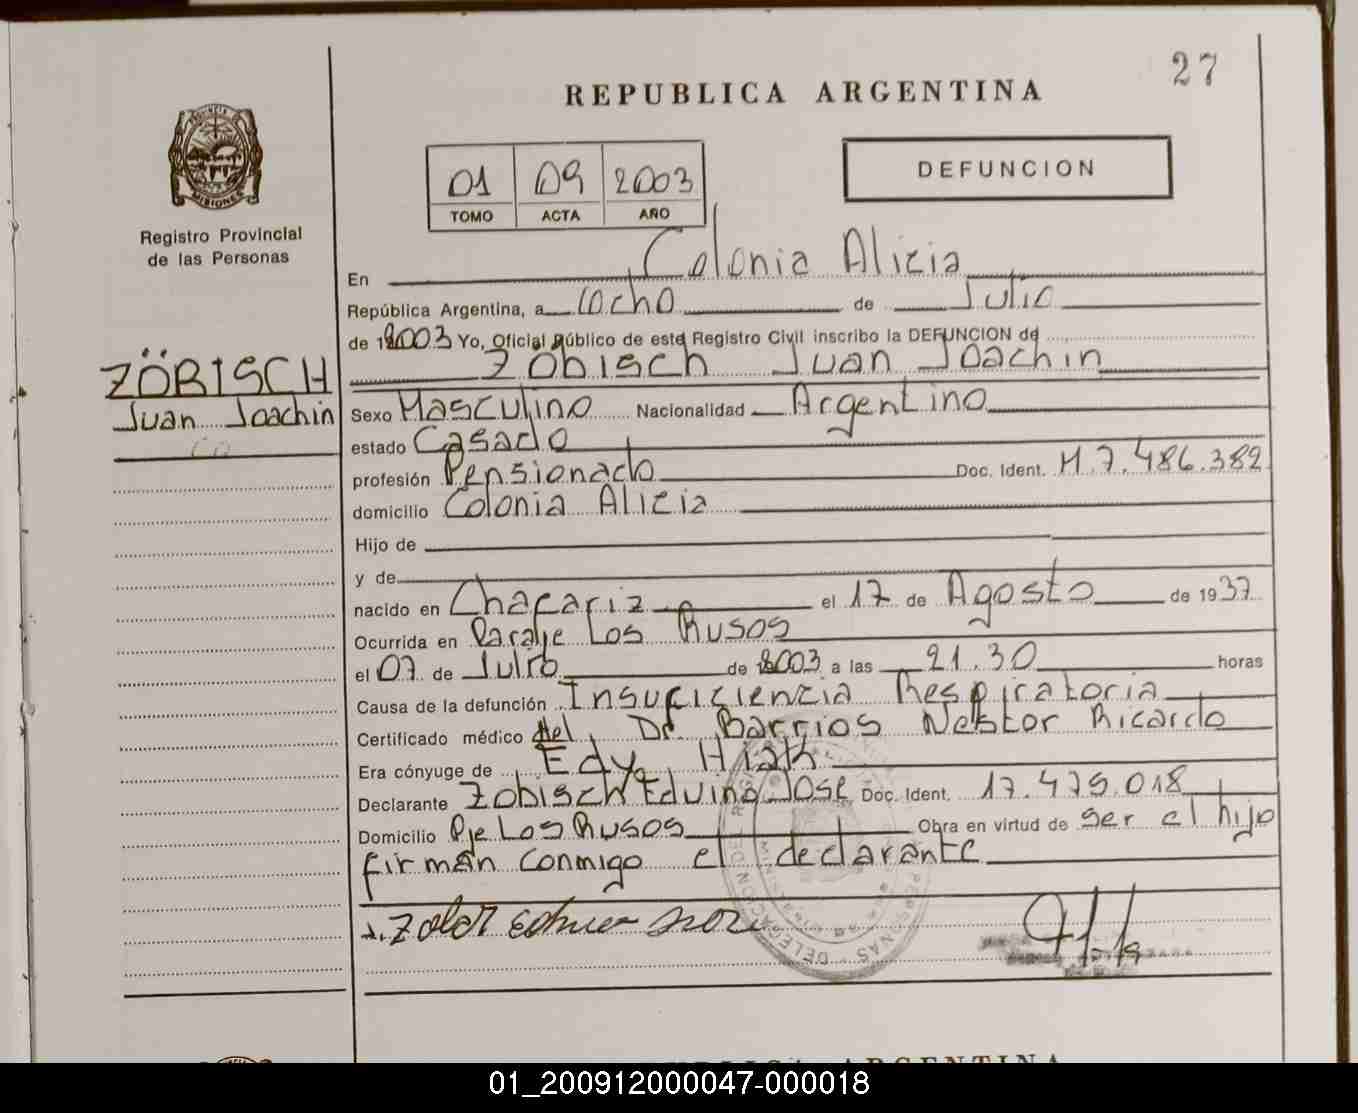 27
REPUBLICA ARGENTINA
01 09 2003
TOMO ACTA AÑO
DEFUNCION
MISIONES
Registro Provincial
de las Personas
ZÖBISCH
Juan Joachin
En Colonia Alicia
República Argentina, a ocho de Julio
de 2003 Yo, Oficial Público de este Registro Civil inscribo la DEFUNCION de
Zöbisch Juan Joachin
Sexo Masculino Nacionalidad Argentino
estado Casado
profesión Pensionado Doc. Ident. M.7.486.382
domicilio Colonia Alicia
Hijo de
y de
nacido en Chafariz el 17 de Agosto de 1937
Ocurrida en Paraje Los Rusos
el 07 de Julio de 2003 a las 21.30 horas
Causa de la defunción Insuficiencia Respiratoria
Certificado médico del Dr. Barrios Nestor Ricardo
Era cónyuge de Edy
Declarante Zobisch Eduino Jose Doc. Ident. 17.475.018
Domicilio Pje Los Rusos Obra en virtud de ser el hijo
firman conmigo el declarante
DELEGACION PERSONAS
REPUBLICA ARGENTINA
01_200912000047-000018